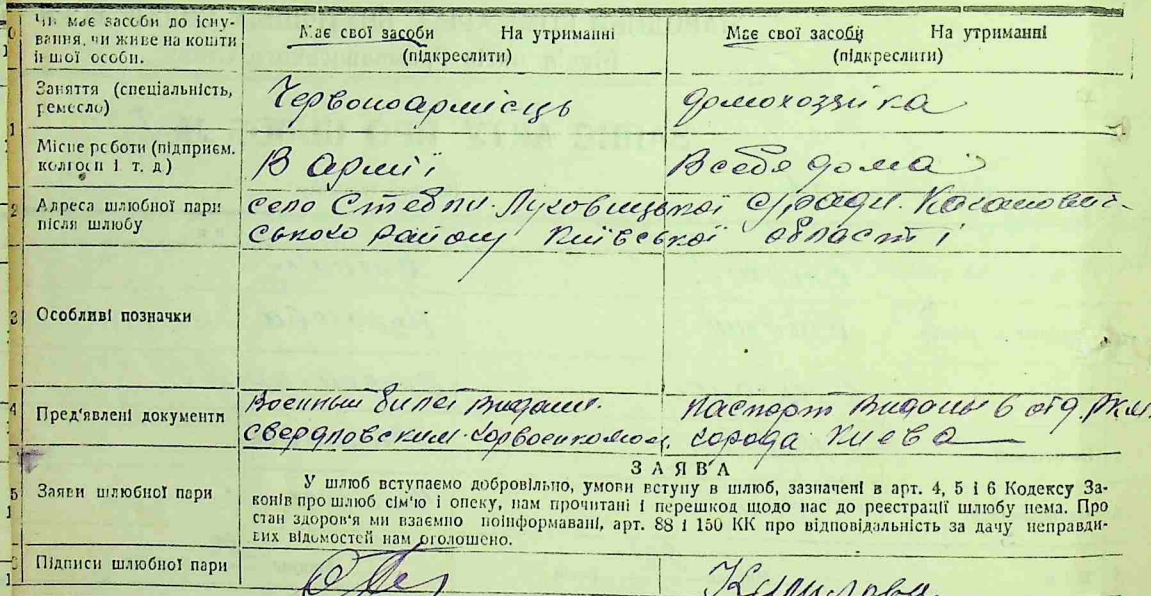 Чи має засоби до існу-
вання, чи живе на кошти
іншої особи.
Має свої засоби На утриманні
(підкреслити)
Має свої засоби На утриманні
(підкреслити)
Заняття (спеціальність,
ремесло)
Червоноармієць
домохозяйка
Місце роботи (підприєм.
колгосп і т. д.)
В армії
В себя дома
Адреса шлюбної пари
після шлюбу
село Стебли Луковицької с/ради Каганович-
ського району Київської області
Особливі позначки
Пред'явлені документи
Военный билет выдан
Свердловским горвоенкомом
паспорт выдан 6 отд. РКМ
города Киева
Заяви шлюбної пари
ЗАЯВА
У шлюб вступаємо добровільно, умови вступу в шлюб, зазначені в арт. 4, 5 і 6 Кодексу За-
конів про шлюб сім'ю і опеку, нам прочитані і перешкод щодо нас до реєстрації шлюбу нема. Про
стан здоров'я ми взаємно поінформавані, арт. 88 і 150 КК про відповідальність за дачу неправди-
вих відомостей нам оголошено.
Підписи шлюбної пари